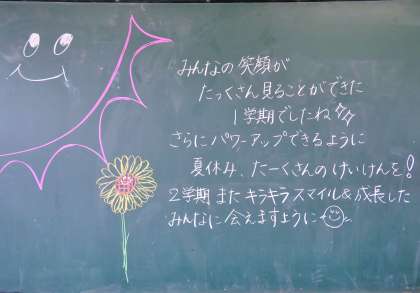 みんなの笑顔が
たっくさん見ることができた
1学期でしたね
さらにパワーアップできるように
夏休み、たーくさんのけいけんを!
2学期 また キラキラスマイル&成長した
みんなに会えますように